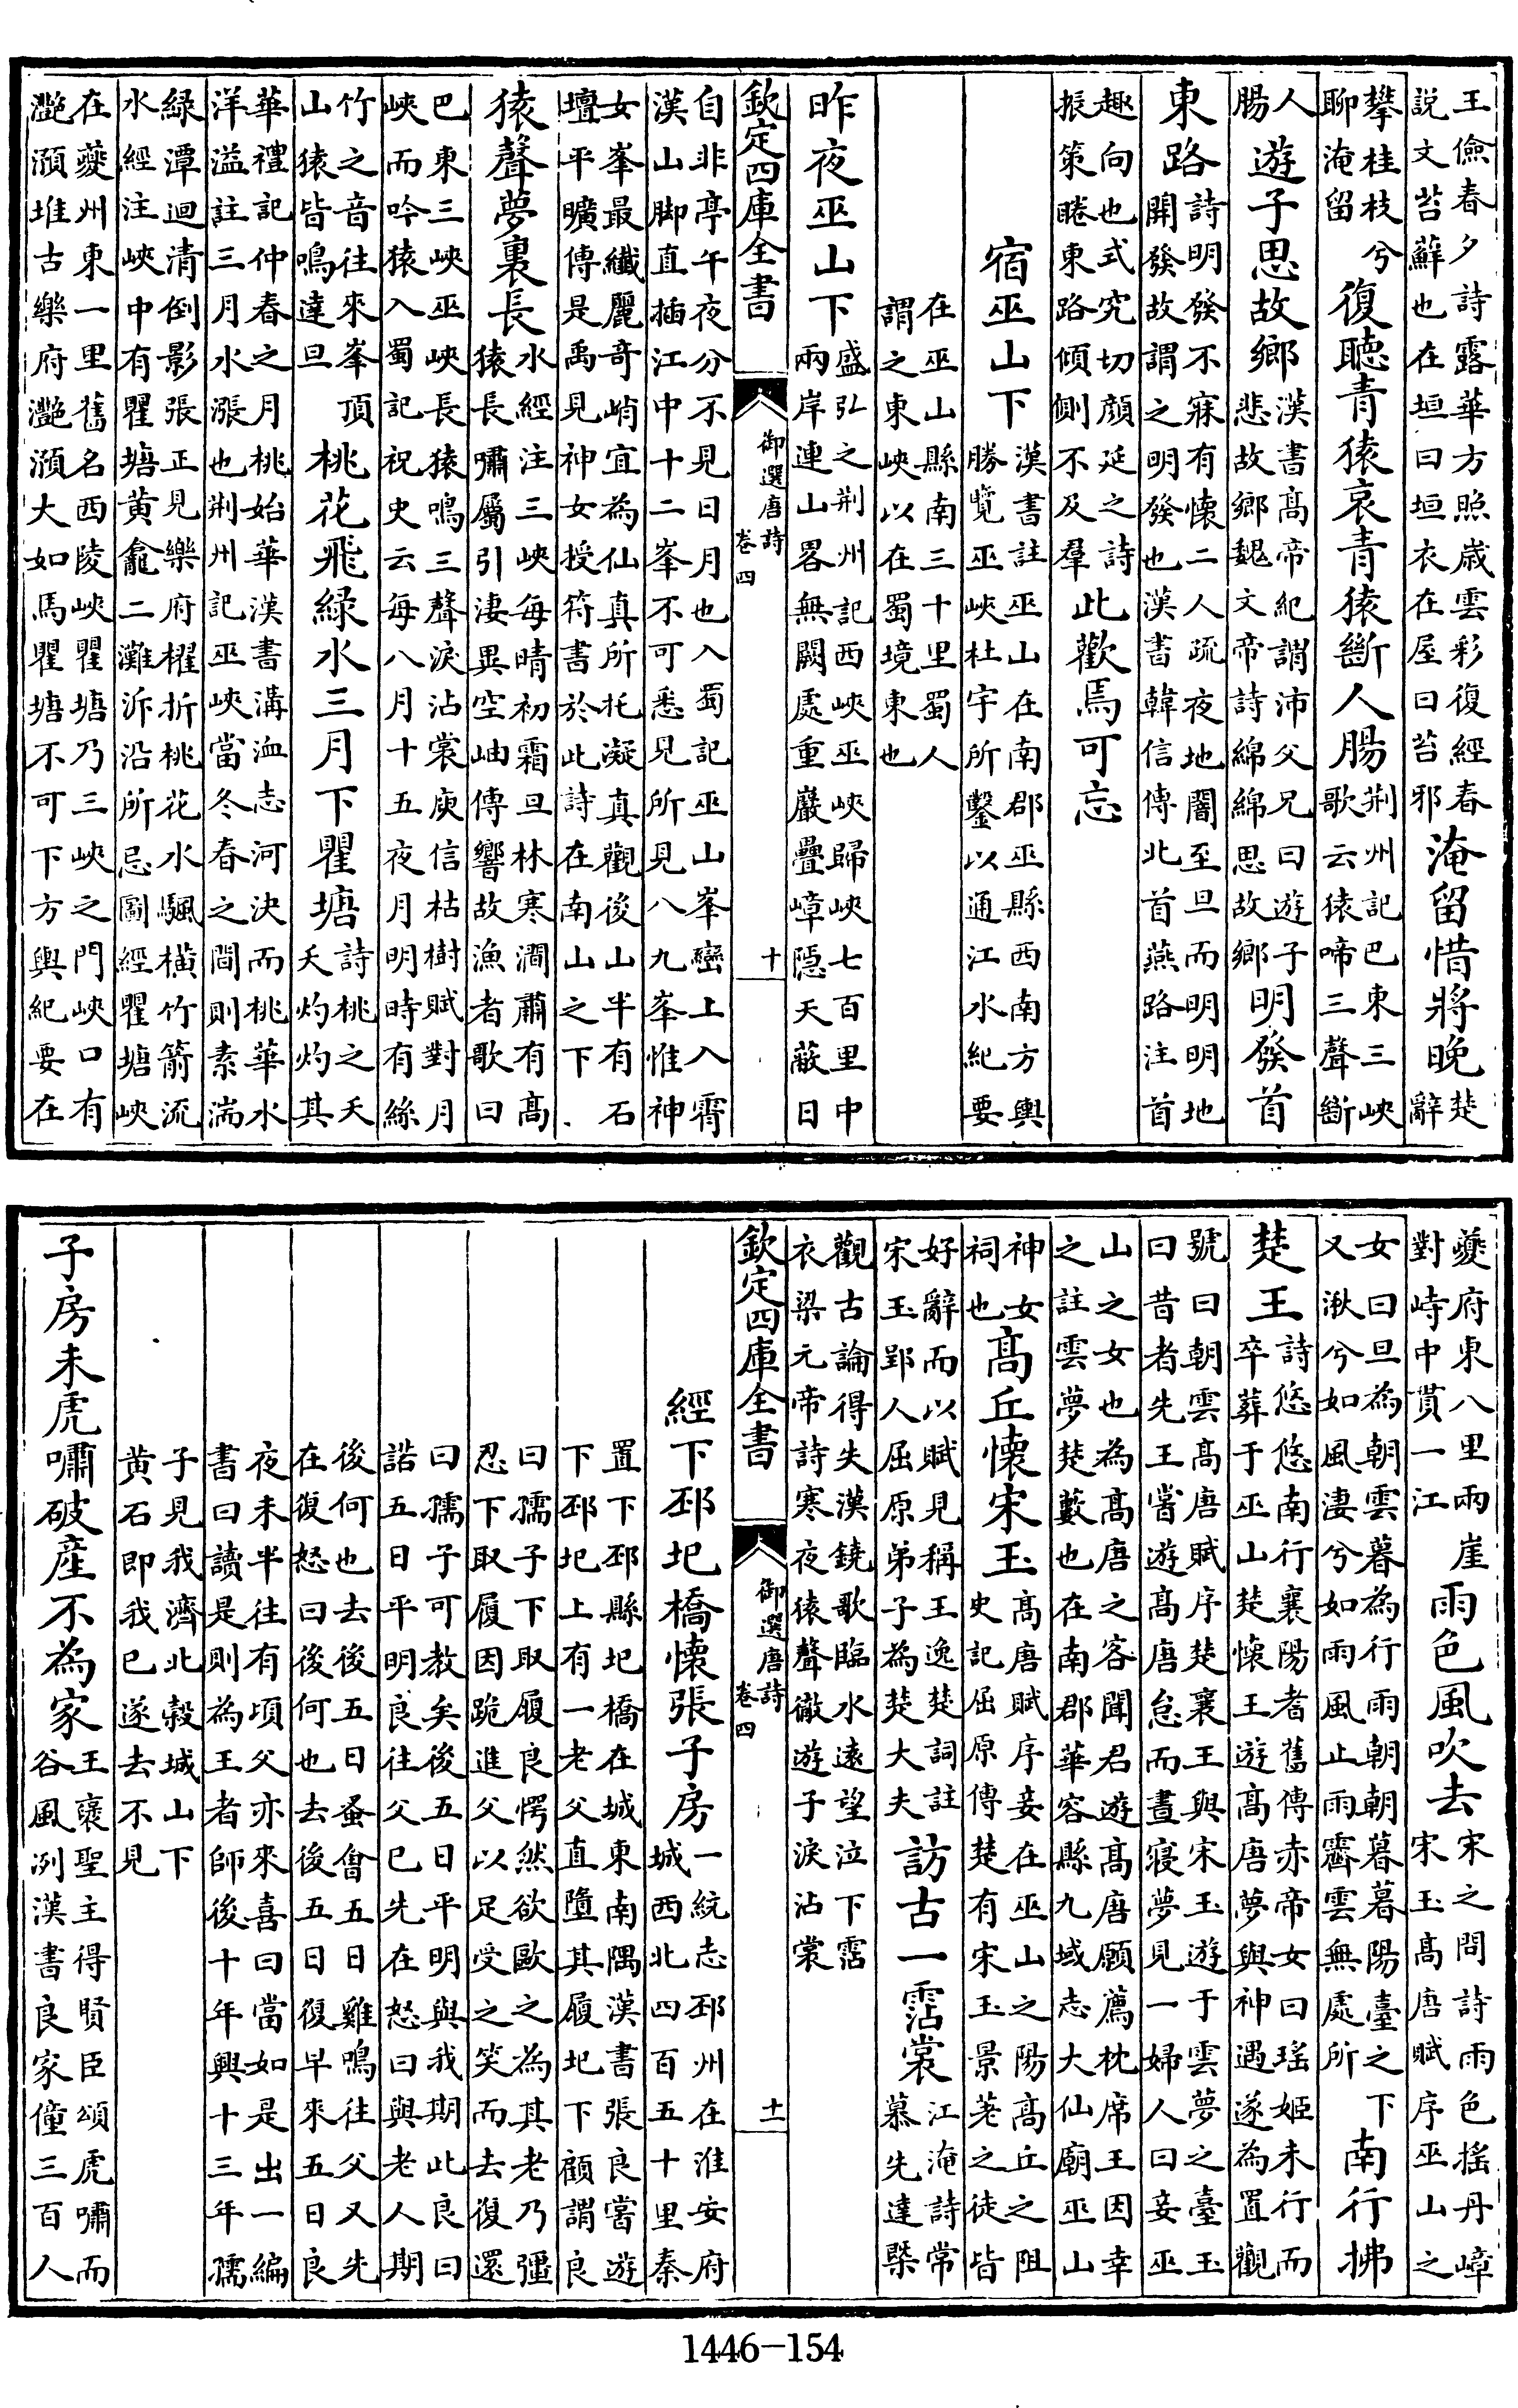 王儉春夕詩露華方照歲雲彩復經春説文苔蘚也在垣曰垣衣在屋曰苔邪淹留惜將晚楚辭
攀桂枝兮聊淹留復聽青猿哀青猿斷人腸荆州記巴東三峽歌云猿啼三聲斷
人腸遊子思故鄉漢書髙帝紀謂沛父兄曰遊子悲故鄉魏文帝詩綿綿思故鄉明發首
東路詩明發不寐有懷二人疏夜地闇至旦而明明地開發故謂之明發也漢書韓信傳北首燕路注首
趣向也式究切顔延之詩振策睠東路傾側不及羣此歡焉可忘
宿巫山下漢書註巫山在南郡巫縣西南方輿勝覽巫峽杜宇所鑿以通江水紀要
在巫山縣南三十里蜀人謂之東峽以在蜀境東也
昨夜巫山下盛弘之荆州記西峽巫峽歸峽七百里中兩岸連山畧無闕處重巖疊嶂隱天蔽日
欽定四庫全書 御選唐詩 卷四 十
自非亭午夜分不見日月也入蜀記巫山峯巒上入霄漢山脚直插江中十二峯不可悉見所見八九峯惟神
女峯最纖麗奇峭宜為仙真所托凝真觀後山半有石壇平曠傳是禹見神女授符書於此詩在南山之下
猿聲夢裏長水經注三峽每晴初霜旦林寒澗肅有髙猿長嘯屬引淒異空岫傳響故漁者歌曰
巴東三峽巫峽長猿鳴三聲淚沾裳庾信枯樹賦對月峽而吟猿入蜀記祝史云每八月十五夜月明時有絲
竹之音往來峯頂山猿皆鳴達旦桃花飛緑水三月下瞿塘詩桃之夭夭灼灼其
華禮記仲春之月桃始華漢書溝洫志河決而桃華水洋溢註三月水漲也荆州記巫峽當冬春之間則素湍
緑潭迴清倒影張正見樂府櫂折桃花水颿横竹箭流水經注峽中有瞿塘黄龕二灘泝沿所忌圖經瞿塘峽
在夔州東一里舊名西陵峽瞿塘乃三峽之門峽口有灔澦堆古樂府灔澦大如馬瞿塘不可下方輿紀要在
夔府東八里兩崖對峙中貫一江雨色風吹去宋之問詩雨色揺丹嶂宋玉髙唐賦序巫山之
女曰旦為朝雲暮為行雨朝朝暮暮陽臺之下又湫兮如風淒兮如雨風止雨霽雲無處所南行拂
楚王詩悠悠南行襄陽耆舊傳赤帝女曰瑶姬未行而卒葬于巫山楚懷王遊髙唐夢與神遇遂為置觀
號曰朝雲髙唐賦序楚襄王與宋玉遊于雲夢之臺玉曰昔者先王嘗遊髙唐怠而晝寢夢見一婦人曰妾巫
山之女也為髙唐之客聞君遊髙唐願薦枕席王因幸之註雲夢楚藪也在南郡華容縣九域志大仙廟巫山
神女祠也髙丘懷宋玉髙唐賦序妾在巫山之陽髙丘之阻史記屈原傳楚有宋玉景差之徒皆
好辭而以賦見稱王逸楚詞註宋玉郢人屈原弟子為楚大夫訪古一霑裳江淹詩常慕先達槩
觀古論得失漢鐃歌臨水遠望泣下霑衣梁元帝詩寒夜猿聲徹遊子淚沾裳
欽定四庫全書 御選唐詩 卷四 十一
經下邳圯橋懷張子房一統志邳州在淮安府城西北四百五十里秦
置下邳縣圯橋在城東南隅漢書張良嘗遊下邳圯上有一老父直墮其履圯下顧謂良
曰孺子下取履良愕然欲歐之為其老乃彊忍下取履因跪進父以足受之笑而去復還
曰孺子可教矣後五日平明與我期此良曰諾五日平明良往父已先在怒曰與老人期
後何也去後五日蚤會五日雞鳴往父又先在復怒曰後何也去後五日復早來五日良
夜未半往有頃父亦來喜曰當如是出一編書曰讀是則為王者師後十年興十三年孺
子見我濟北穀城山下黄石即我已遂去不見
子房未虎嘯破產不為家王襃聖主得賢臣頌虎嘯而谷風冽漢書良家僮三百人
1446-154